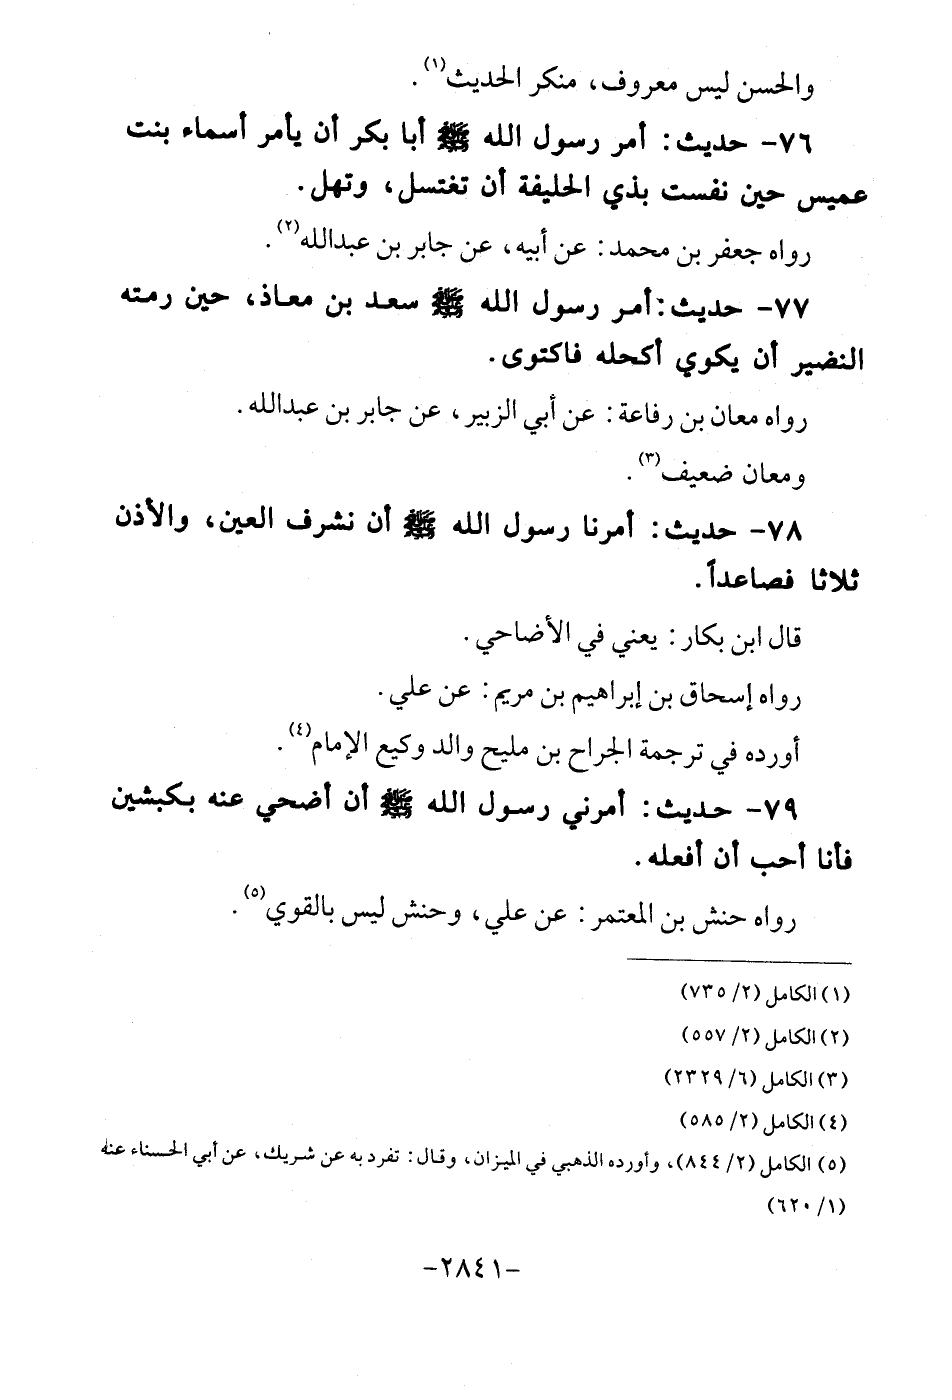 والحسن ليس معروف، منكر الحديث(١).
٧٦- حديث: أمر رسول الله ﷺ أبا بكر أن يأمر أسماء بنت
عميس حين نفست بذي الحليفة أن تغتسل، وتهل.
رواه جعفر بن محمد: عن أبيه، عن جابر بن عبدالله(٢).
٧٧- حديث:أمر رسول الله ﷺ سعد بن معاذ، حين رمته
النضير أن يكوي أكحله فاكتوى.
رواه معان بن رفاعة: عن أبي الزبير، عن جابر بن عبدالله.
ومعان ضعيف(٣).
٧٨- حديث: أمرنا رسول الله ﷺ أن نشرف العين، والأذن
ثلاثا فصاعداً.
قال ابن بكار: يعني في الأضاحي.
رواه إسحاق بن إبراهيم بن مريم: عن علي.
أورده في ترجمة الجراح بن مليح والد وكيع الإمام(٤).
٧٩- حديث: أمرني رسول الله ﷺ أن أضحي عنه بكبشين
فأنا أحب أن أفعله.
رواه حنش بن المعتمر: عن علي، وحنش ليس بالقوي(٥).
(١) الكامل (٢/ ٧٣٥)
(٢) الكامل (٢/ ٥٥٧)
(٣) الكامل (٦/ ٢٣٢٩)
(٤) الكامل (٢/ ٥٨٥)
(٥) الكامل (٢/ ٨٤٤)، وأورده الذهبي في الميزان، وقال: تفرد به عن شريك، عن أبي الحسناء عنه
(١/ ٦٢٠)
-٢٨٤١-